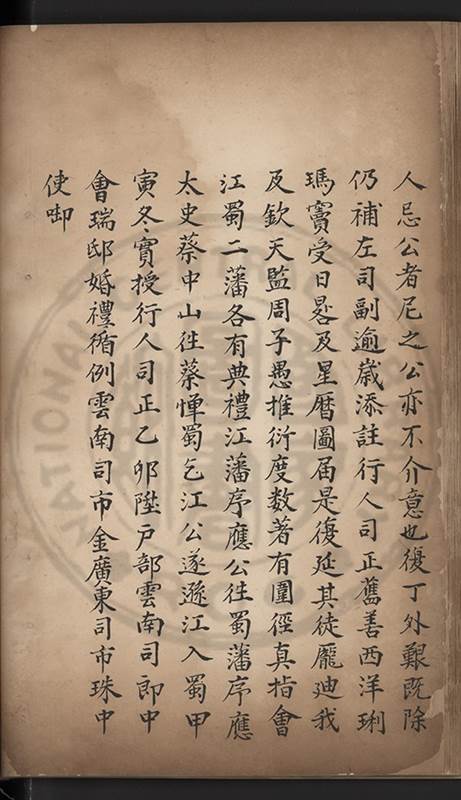 人忌公者尼之公亦不介意也復丁外艱旣除
仍補左司副逾歲添註行人司正舊善西洋琍
瑪竇受日晷及星曆圖届是復延其徒龐廸我
及欽天監周子愚推衍度数著有圜徑真指會
江蜀二藩各有典禮江藩序應公徃蜀藩序應
太史蔡中山徃蔡惮蜀乞江公遂遜江入蜀甲
寅冬實授行人司正乙卯陞户部雲南司郎中
會瑞邸婚禮循例雲南司市金廣東司市珠中
使啣